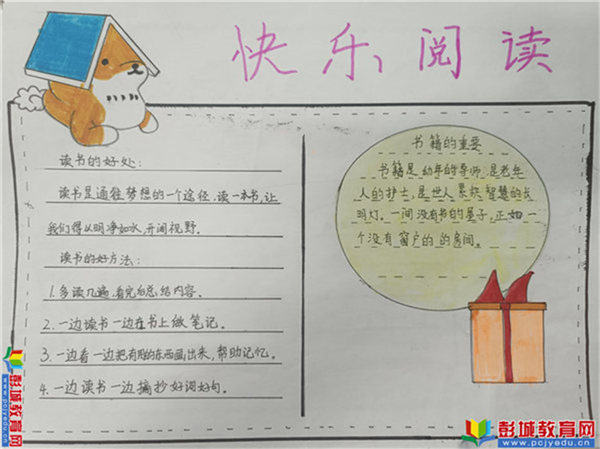 快乐阅读
读书的好处:
读书是通往梦想的一个途径,读一本书,让
我们得以明净如水,开阔视野。
读书的好方法:
1.多读几遍,看完后总结内容。
2.一边读书一边在书上做笔记。
3.一边看一边把有趣的东西画出来,帮助记忆。
4.一边读书一边摘抄好词好句。
书籍的重要
书籍是幼年的导师,是老年
人的护士,是世人累积智慧的长
明灯。一间没有书的屋子,正如一
个没有窗户的的房间。
彭城教育网
www.pcjyedu.com
彭城教育网
www.pcjyedu.com